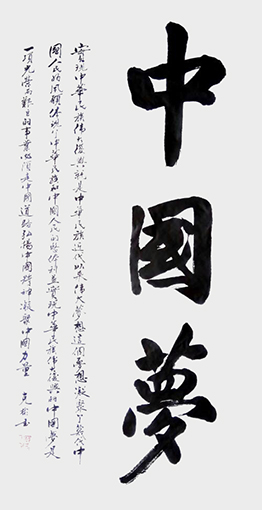 中國夢
實現中華民族偉大復興就是中華民族近代以來偉大夢想這個夢想凝聚了幾代中
國人民的夙願體現了中華民族和中國人民的整體利益實現中華民族偉大復興的中國夢是
一項光榮而艱巨的事業必須走中國道路弘揚中國精神凝聚中國力量